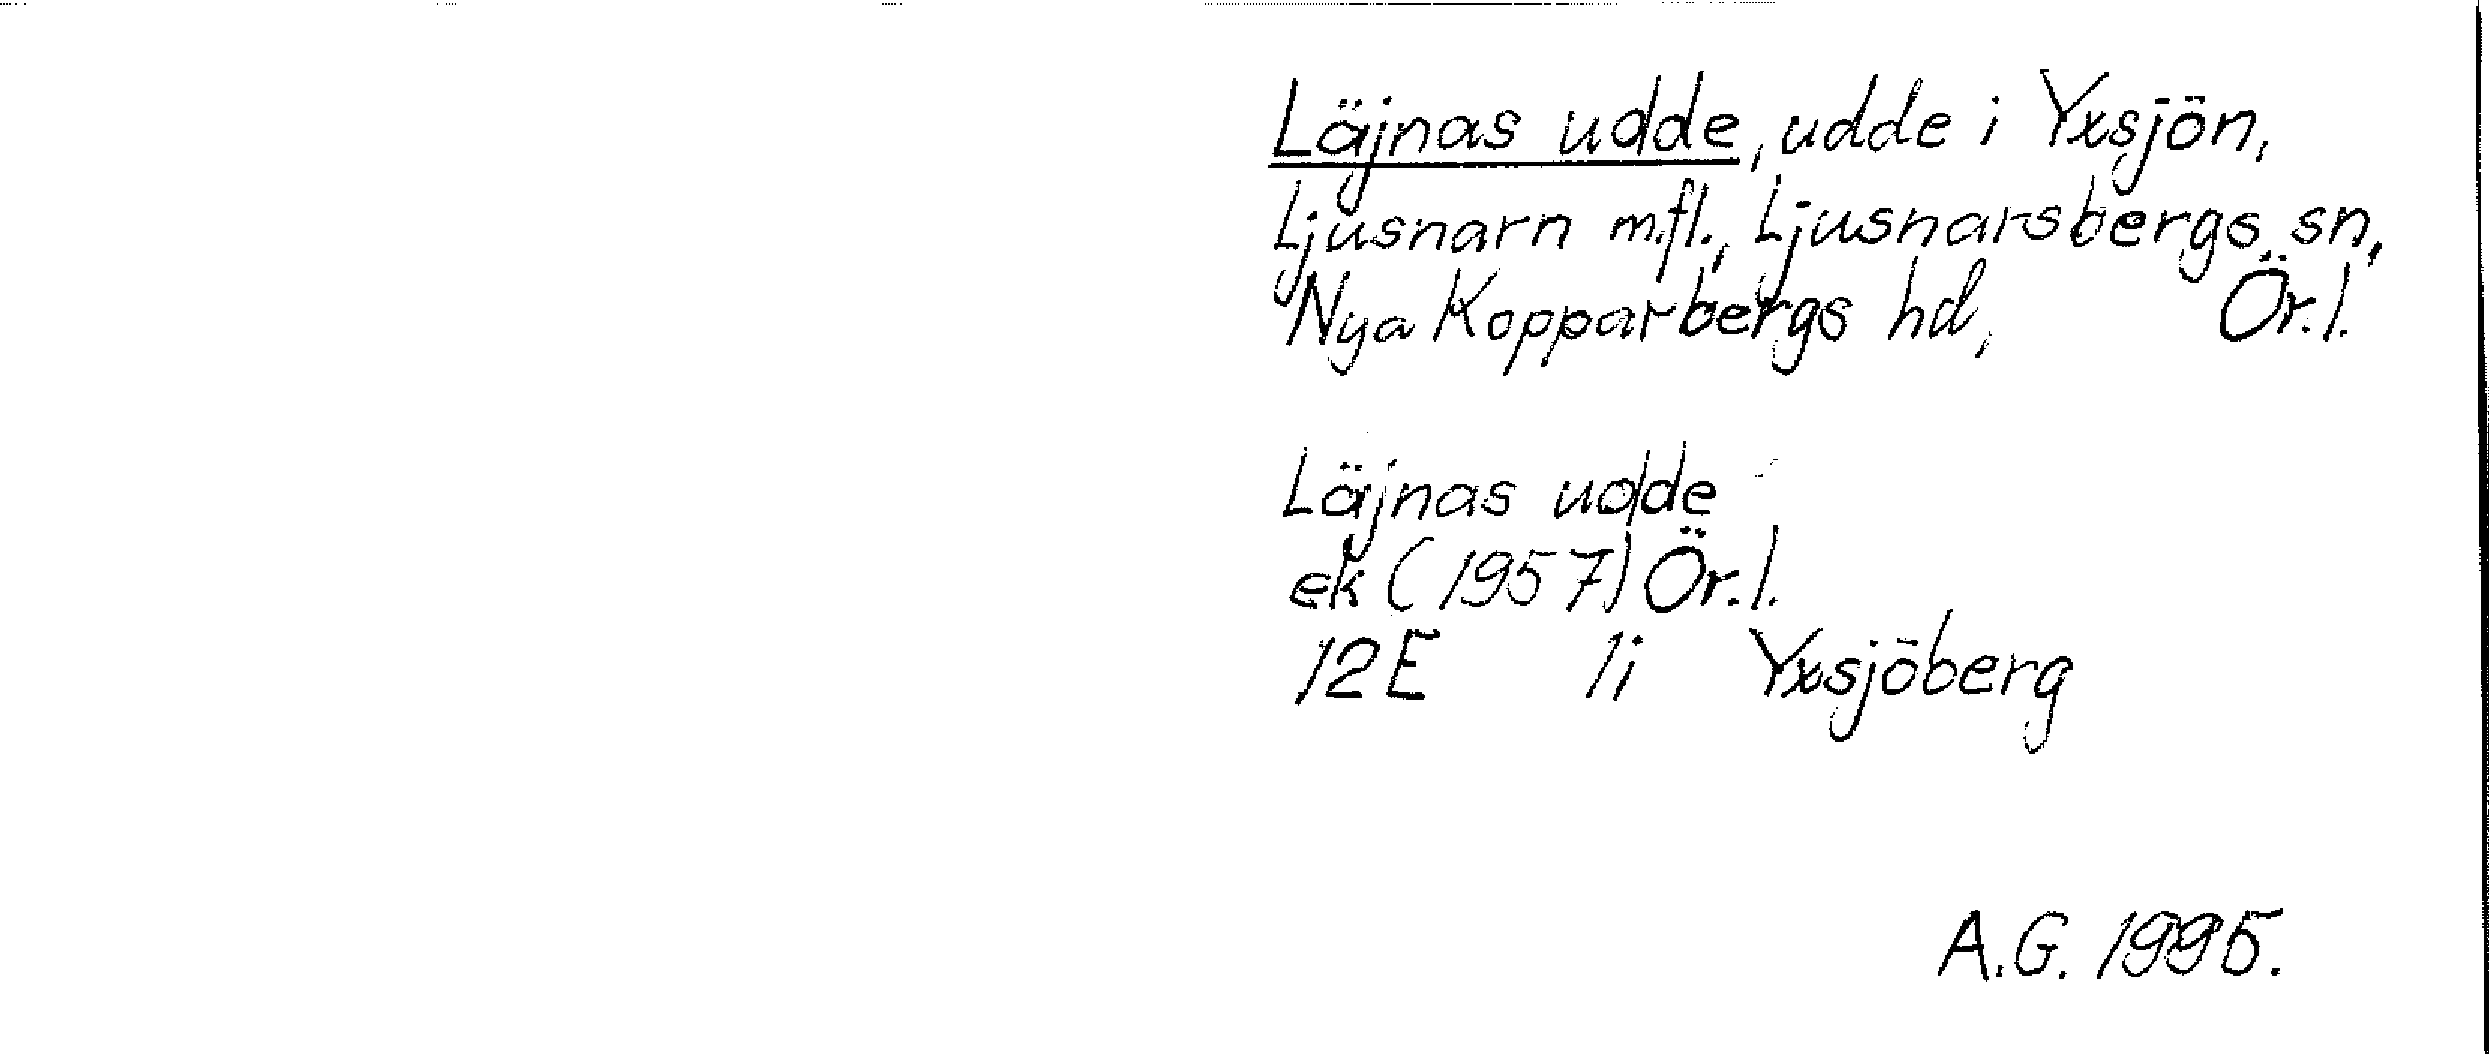 Läjnas udde, udde i Yxsjön,
Ljusnarn m.fl., Ljusnarsbergs sn,
Nya Kopparbergs hd, Ör.l.
Läjnas udde
ek (1957) Ör.l.
12E 1i Yxsjöberg
A.G. 1995.